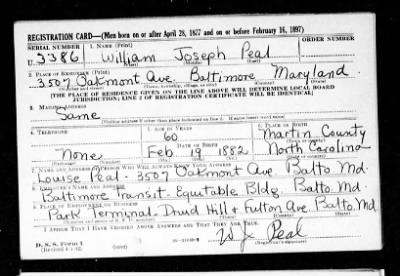 REGISTRATION CARD—(Men born on or after April 28, 1877 and on or before February 16, 1897)
SERIAL NUMBER
1. NAME (Print)
ORDER NUMBER
U. 3386
William Joseph Peal
2. PLACE OF RESIDENCE (Print)
3507 Oakmont Ave. Baltimore Maryland.
[THE PLACE OF RESIDENCE GIVEN ON THE LINE ABOVE WILL DETERMINE LOCAL BOARD
JURISDICTION; LINE 2 OF REGISTRATION CERTIFICATE WILL BE IDENTICAL]
3. MAILING ADDRESS
Same
4. TELEPHONE
5. AGE IN YEARS
6. PLACE OF BIRTH
60
Martin County
DATE OF BIRTH
None
Feb 19 1882
North Carolina
7. NAME AND ADDRESS OF PERSON WHO WILL ALWAYS KNOW YOUR ADDRESS
Louise Peal - 3507 Oakmont Ave Balto Md.
8. EMPLOYER'S NAME AND ADDRESS
Baltimore Transit - Equitable Bldg. Balto. Md.
9. PLACE OF EMPLOYMENT OR BUSINESS
Park Terminal - Druid Hill & Fulton Ave. Balto. Md.
I AFFIRM THAT I HAVE VERIFIED ABOVE ANSWERS AND THAT THEY ARE TRUE.
D. S. S. Form 1
W J Peal
(Registrant's signature)